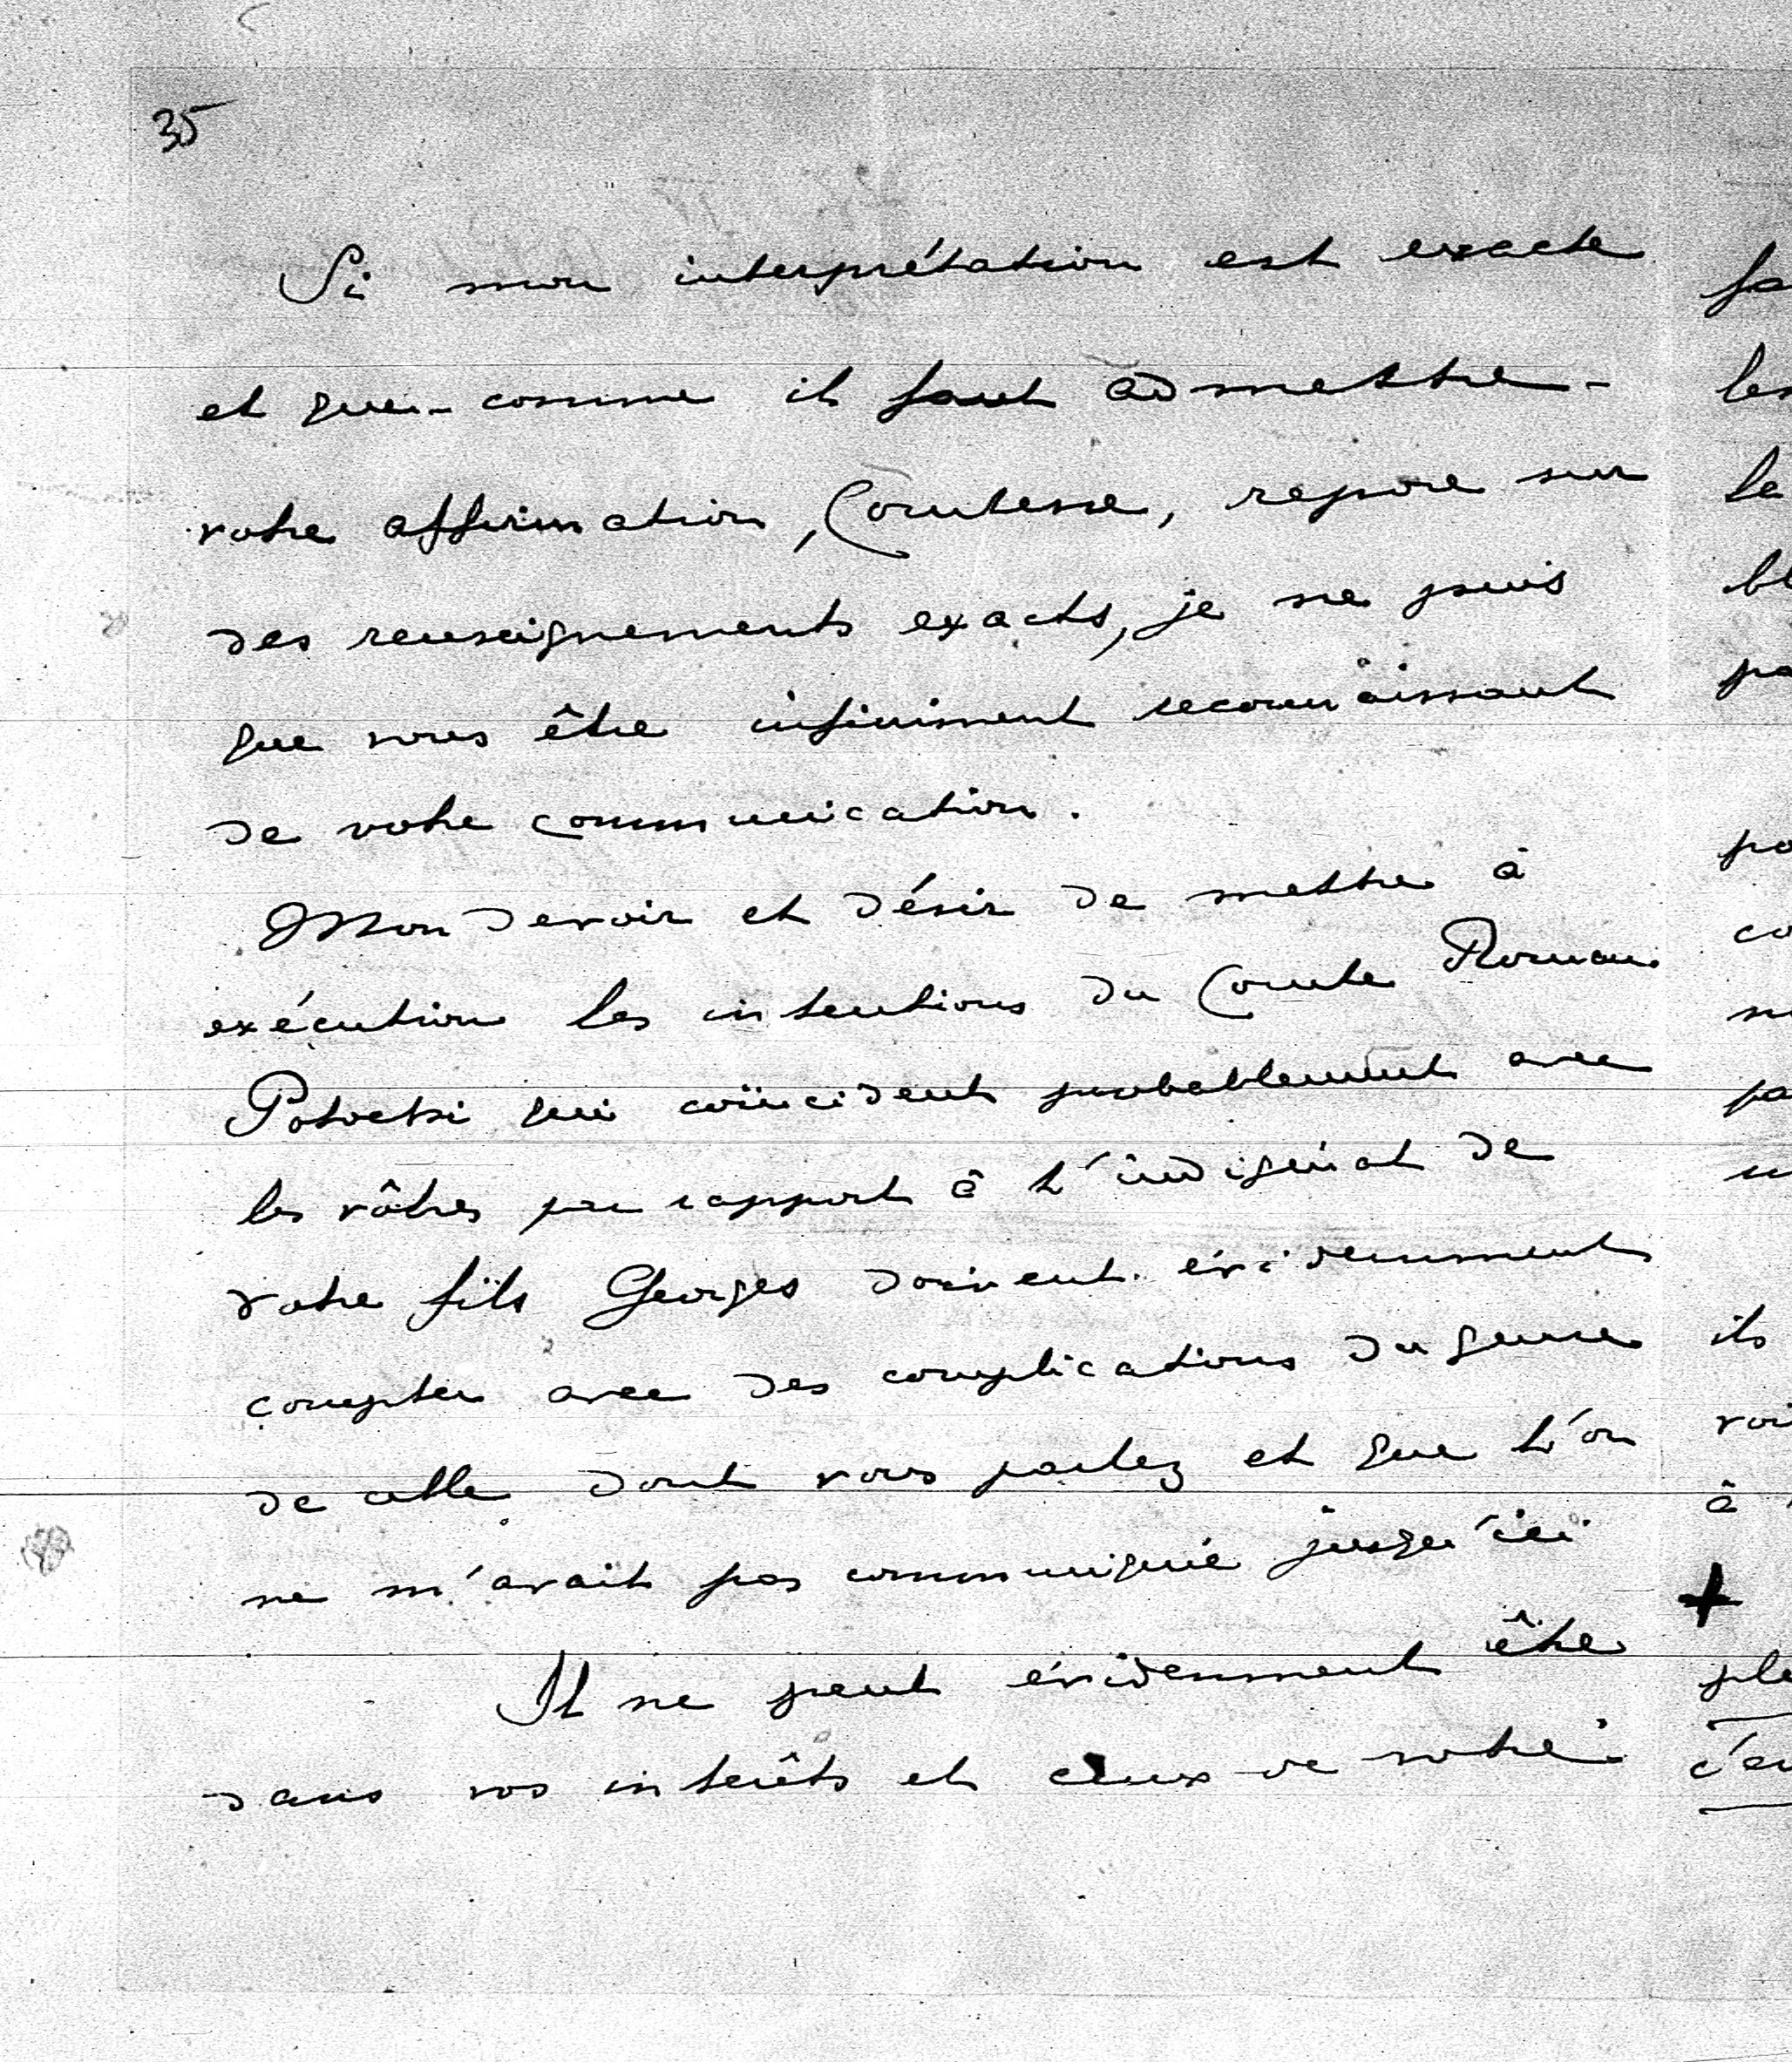 35
Si mon interprétation est exacte
et que - comme il faut admettre -
votre affirmation, Comtesse, repose sur
des renseignements exacts, je ne puis
que vous être infiniment reconnaissant
de votre communication.
Mon devoir et désir de mettre à
exécution les intentions du Comte Roman
Potocki qui coïncident probablement avec
les vôtres par rapport à l'indigénat de
votre fils Georges doivent évidemment
compter avec des complications du genre
de celle dont vous parlez et que l'on
ne m'avait pas communiqué jusqu'ici
Il ne peut évidemment être
dans vos intérêts et ceux de notre
les
la
à
ils
+